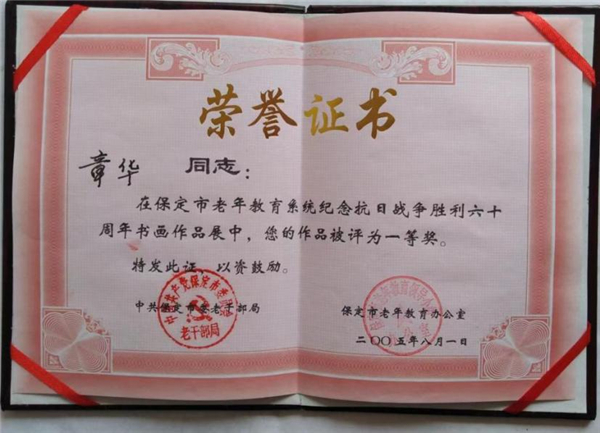 荣誉证书
章华 同志:
在保定市老年教育系统纪念抗日战争胜利六十
周年书画作品展中,您的作品被评为一等奖。
特发此证,以资鼓励。
中共保定市委老干部局
保定市老年教育办公室
二〇〇五年八月一日
中国共产党保定市委员会
老干部局